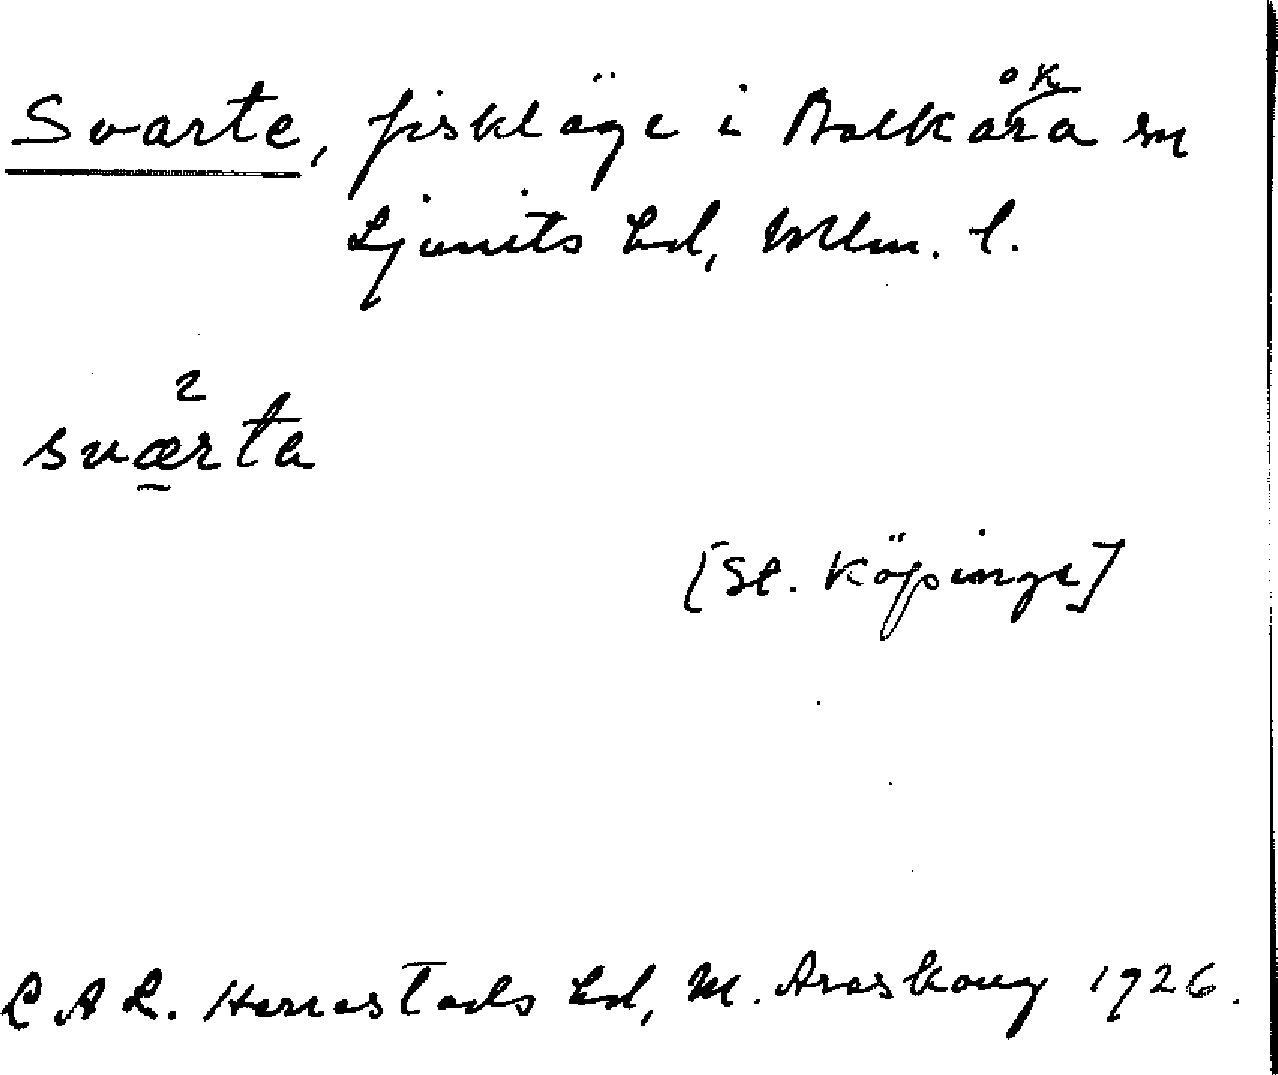 Svarte, fiskläge i Balkåkra sn
Ljunits hd, Mlm. l.
2
sværta
[St. Köpinge]
LAL. Herrestads hd, M. Areskoug 1926.